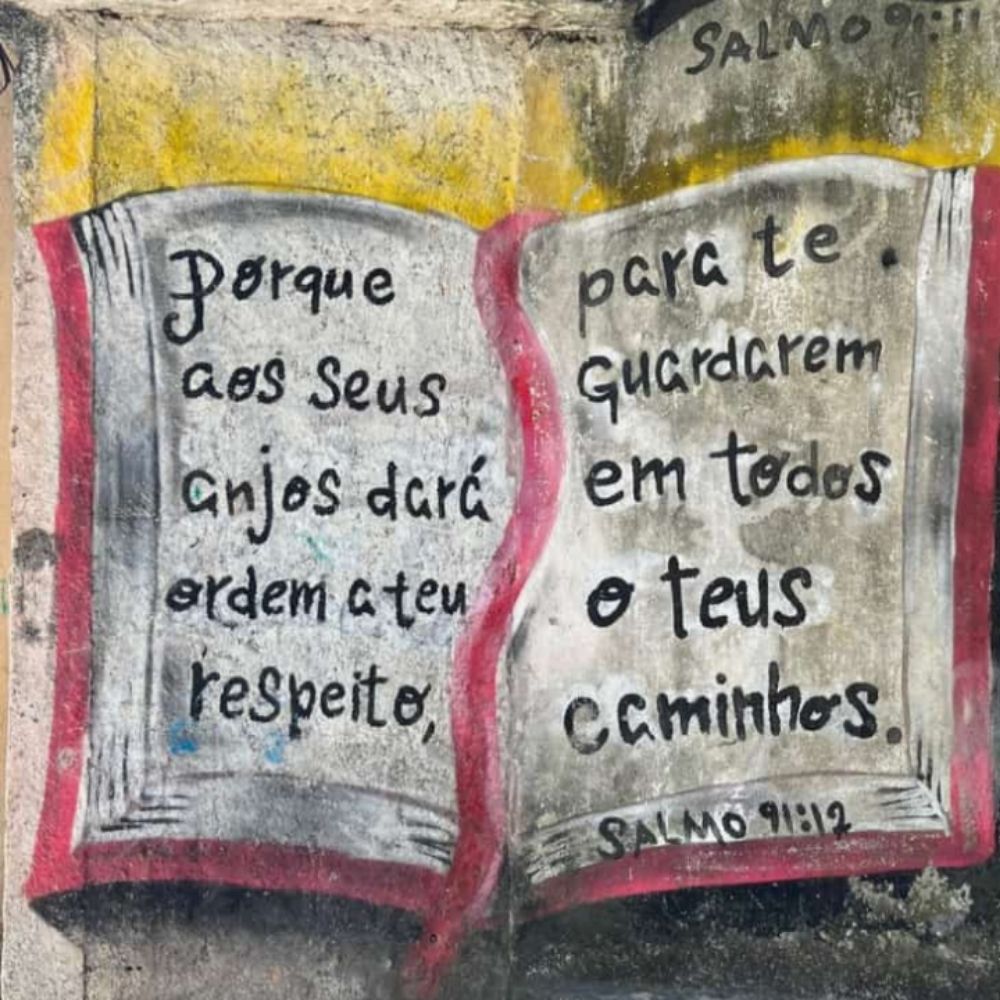 SALMO 91:11
Porque
aos seus
anjos dará
ordem a teu
respeito,
para te .
guardarem
em todos
o teus
caminhos.
SALMO 91:12